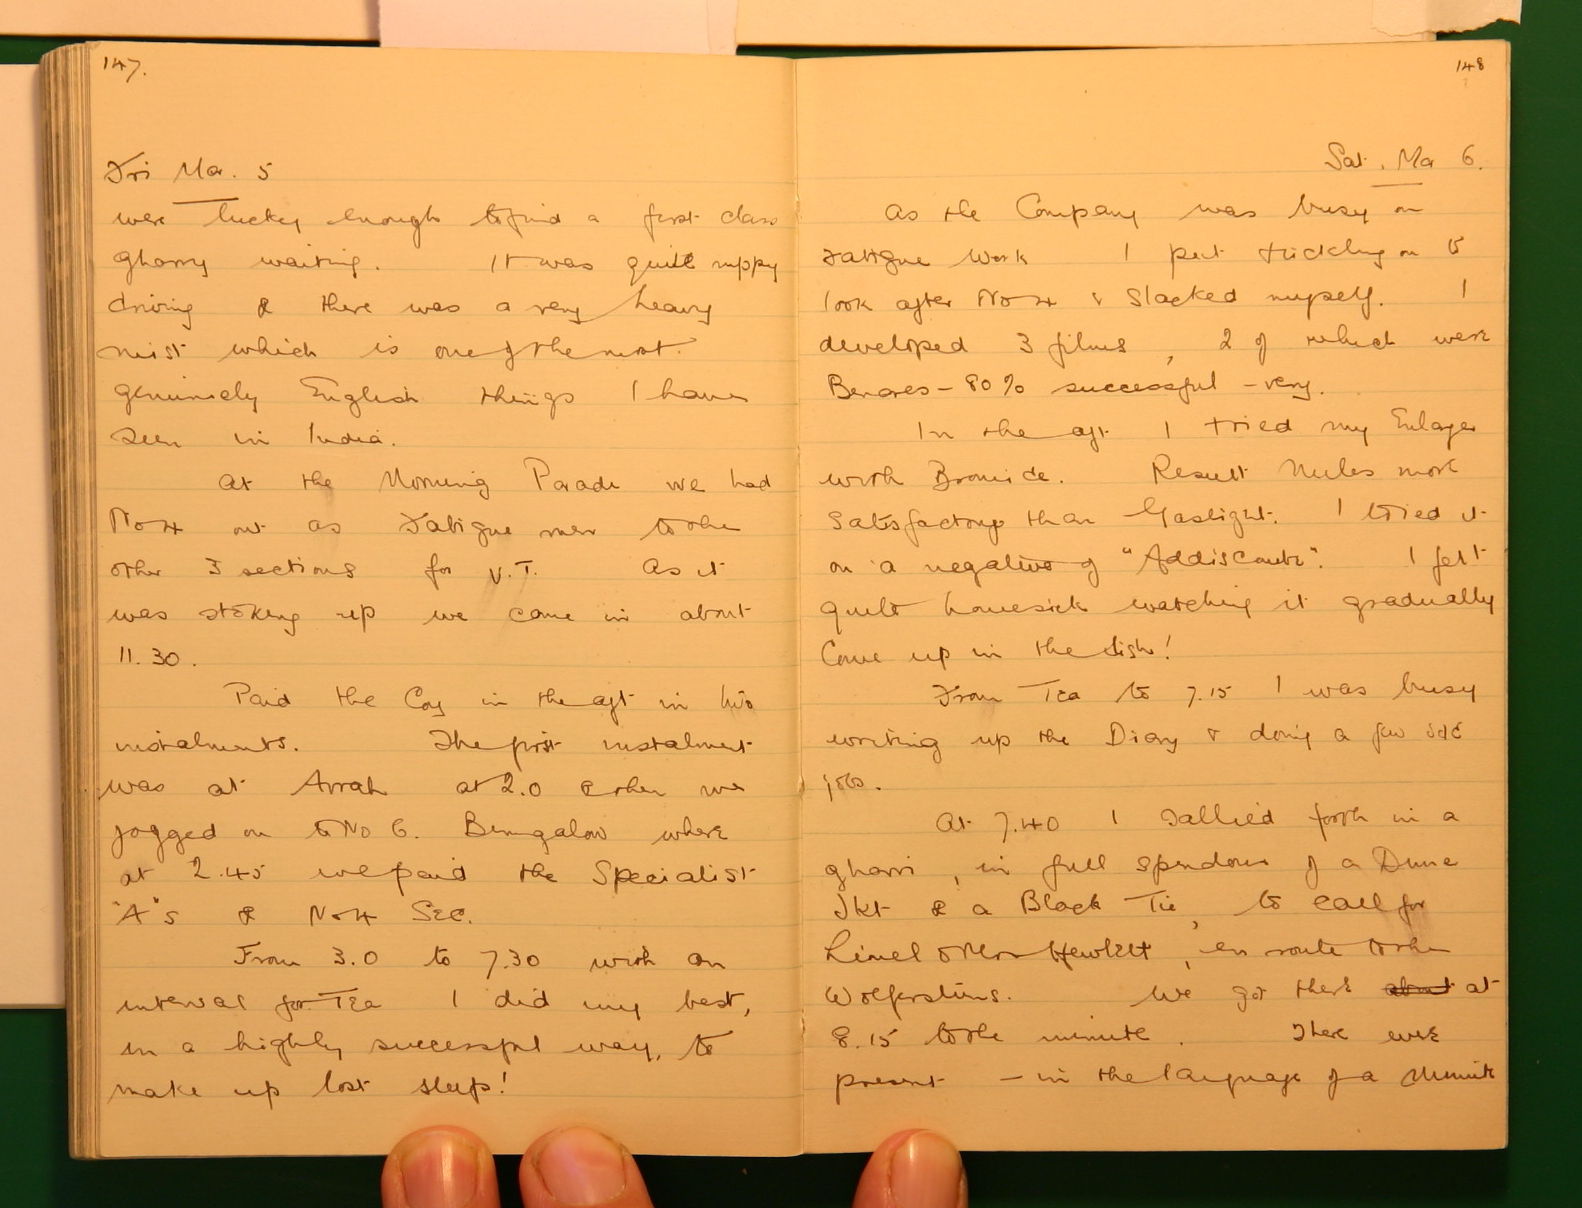 147.
Fri Mar. 5
were lucky enough to find a first class
gharry waiting. It was quite nippy
driving & there was a very heavy
mist which is one of the most
genuinely English things I have
seen in India.
At the Morning Parade we had
No 4 out as Fatigue men to the
other 3 sections for V.T. As it
was stoking up we came in about
11.30.
Paid the Coy in the aft in two
instalments. The first instalment
was at Arrah at 2.0 & then we
jogged on to No 6. Bungalow where
at 2.45 we paid the Specialist
"A"s & No 4 Sec.
From 3.0 to 7.30 with an
interval for Tea I did my best,
in a highly successful way, to
make up lost sleep!
148
Sat. Mar 6.
As the Company was busy on
Fatigue Work I put Stickling on to
look after No 4 & Slacked myself. I
developed 3 films, 2 of which were
Benares - 80% successful - very.
In the aft I tried my Enlarger
with Bromide. Result Miles more
satisfactory than Gaslight. I tried it
on a negative of "Addiscombe". I felt
quite homesick watching it gradually
come up in the dish!
From Tea to 7.15 I was busy
writing up the Diary & doing a few odd
jobs.
At 7.40 I Sallied forth in a
gharri, in full spendour of a Dinner
Jkt & a Black Tie, to call for
Lionel & Mrs Hewlett, en route to the
Wolferstans. We got there about at
8.15 to the minute. There were
present - in the language of a Minute